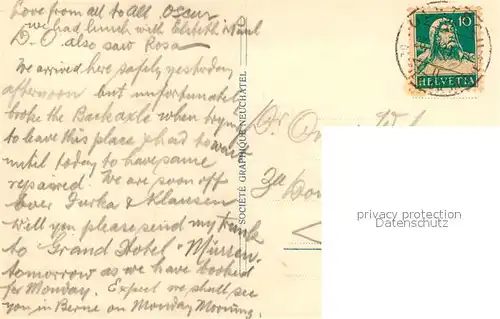 Love from all to All Oscar
we had lunch with Elsbeth Paul
D. O. also saw Rosa
We arrived here safely yesterday
afternoon but unfortunately
broke the Back axle when trying
to leave this place & had to wait
until today to have same
repaired. We are soon off
over Furka & Klausen
Will you please send my trunk
to Grand Hotel Mürren
tomorrow as we have booked
for Monday. Expect we shall see
you in Berne on Monday Morning.
SOCIÉTÉ GRAPHIQUE NEUCHÂTEL
10
HELVETIA
Dr.
privacy protection
Datenschutz